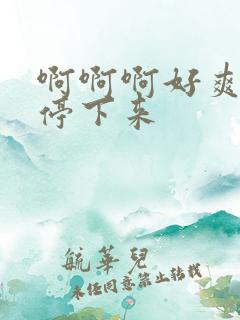 啊啊啊好爽
停下来
毓华儿
未经同意禁止转载